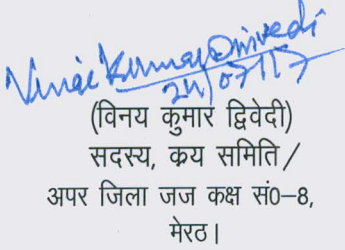 Vinai Kumar Dwivedi
24/07/17
(विनय कुमार द्विवेदी)
सदस्य, क्रय समिति /
अपर जिला जज कक्ष सं0–8,
मेरठ।